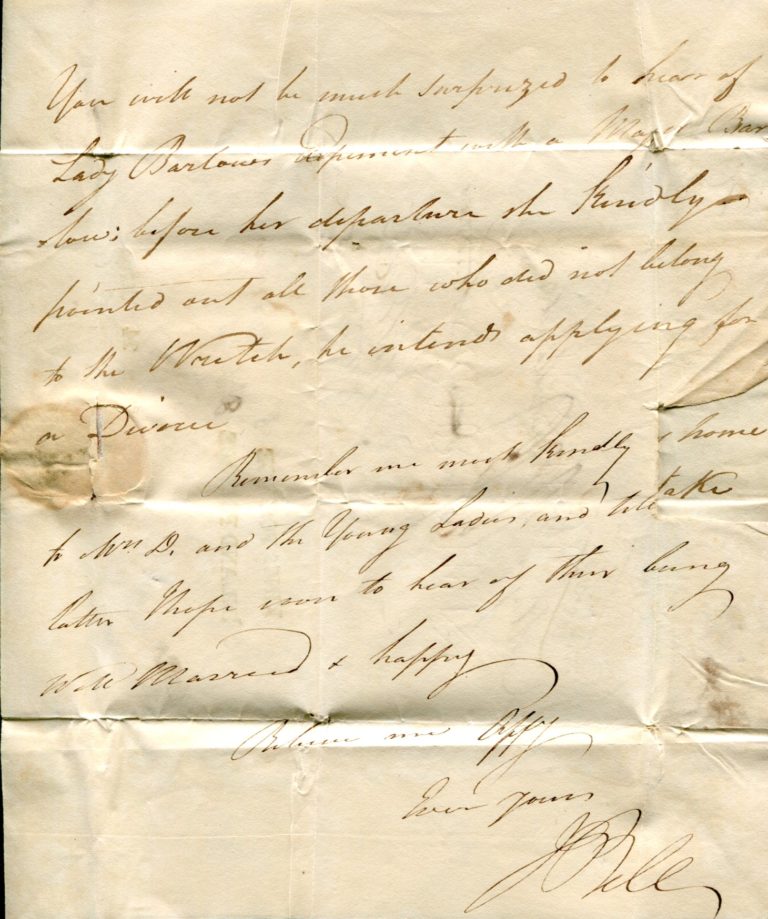 You will not be much surprized to hear of
Lady Barlows elopement with a Major Bar
slow; before her departure she kindly
pointed out all those who did not belong
to the Wretch, he intends applying for
a Divorce
Remember me most kindly
to Mrs D. and the Young Ladies, and
latter I hope soon to hear of their being
Well Married & happy
Believe me
Ever yours
J Bell
& home
take